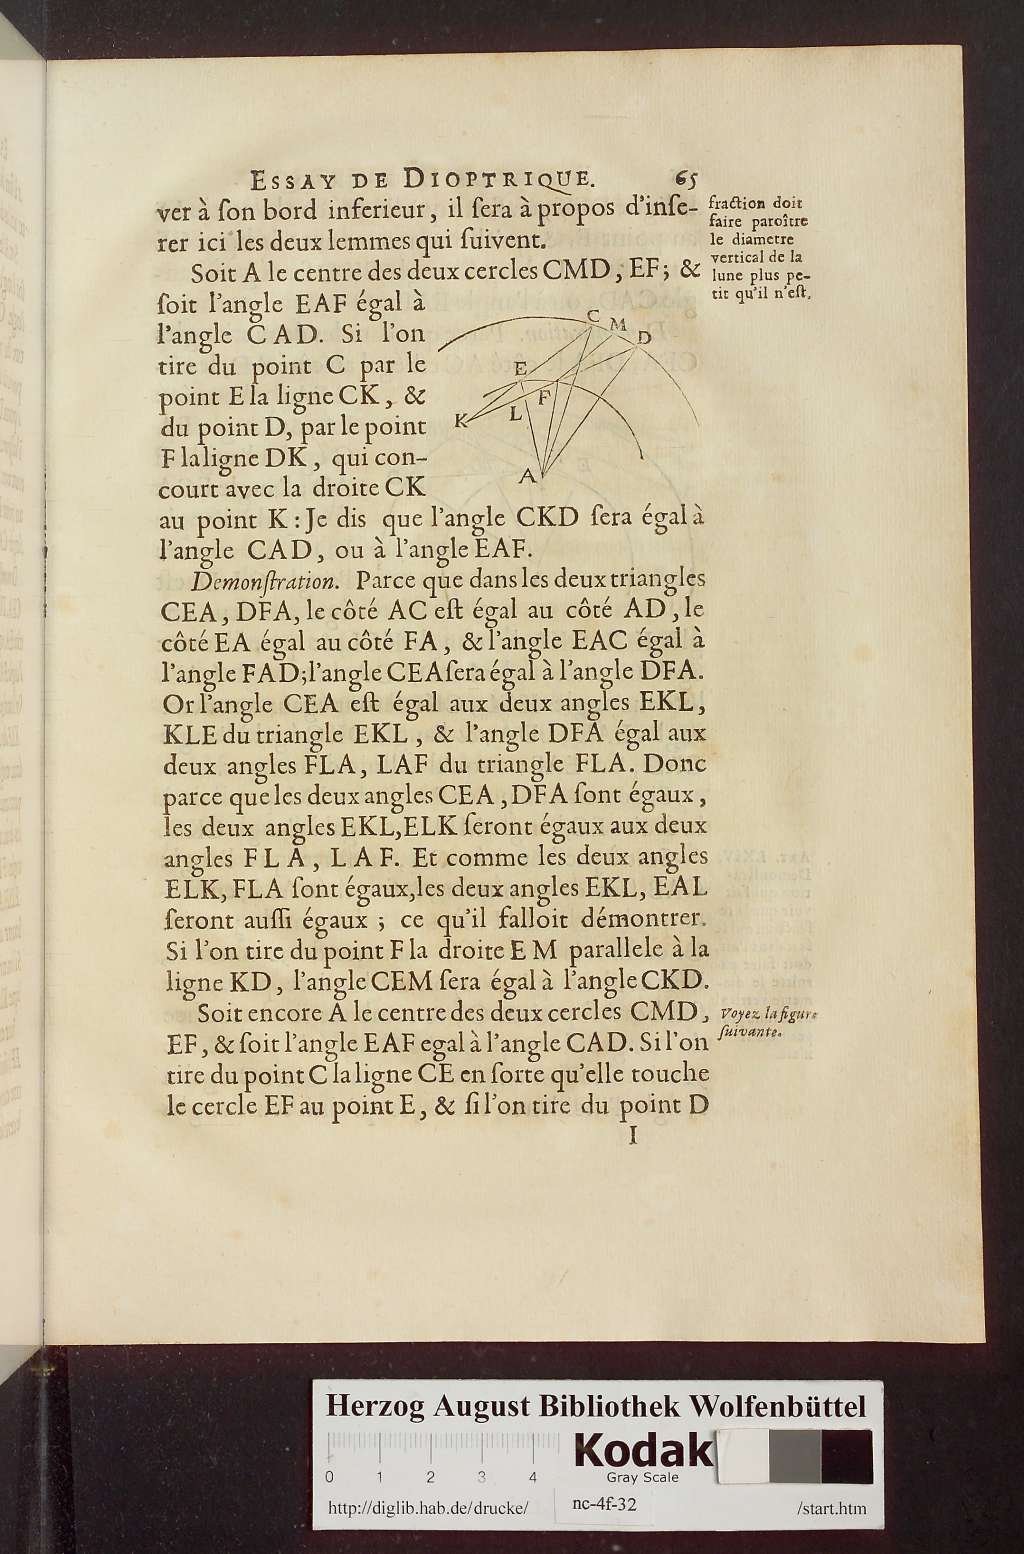 ESSAY DE DIOPTRIQUE. 65
ver à ſon bord inferieur, il ſera à propos d'inſe-
rer ici les deux lemmes qui ſuivent.
fraction doit
faire paroître
le diametre
vertical de la
lune plus pe-
tit qu'il n'eſt.
Soit A le centre des deux cercles CMD, EF; &
ſoit l'angle EAF égal à
l'angle CAD. Si l'on
tire du point C par le
point E la ligne CK, &
du point D, par le point
F la ligne DK, qui con-
court avec la droite CK
C M D
E F
K L
A
au point K: Je dis que l'angle CKD ſera égal à
l'angle CAD, ou à l'angle EAF.
Demonſtration. Parce que dans les deux triangles
CEA, DFA, le côté AC eſt égal au côté AD, le
côté EA égal au côté FA, & l'angle EAC égal à
l'angle FAD; l'angle CEA ſera égal à l'angle DFA.
Or l'angle CEA eſt égal aux deux angles EKL,
KLE du triangle EKL, & l'angle DFA égal aux
deux angles FLA, LAF du triangle FLA. Donc
parce que les deux angles CEA, DFA ſont égaux,
les deux angles EKL, ELK ſeront égaux aux deux
angles FLA, LAF. Et comme les deux angles
ELK, FLA ſont égaux, les deux angles EKL, EAL
ſeront auſſi égaux; ce qu'il falloit démontrer.
Si l'on tire du point F la droite EM parallele à la
ligne KD, l'angle CEM ſera égal à l'angle CKD.
Soit encore A le centre des deux cercles CMD,
EF, & ſoit l'angle EAF egal à l'angle CAD. Si l'on
tire du point C la ligne CE en ſorte qu'elle touche
le cercle EF au point E, & ſi l'on tire du point D
Voyez la figure
ſuivante.
I
Herzog August Bibliothek Wolfenbüttel
0 1 2 3 4
Kodak
Gray Scale
http://diglib.hab.de/drucke/ nc-4f-32 /start.htm